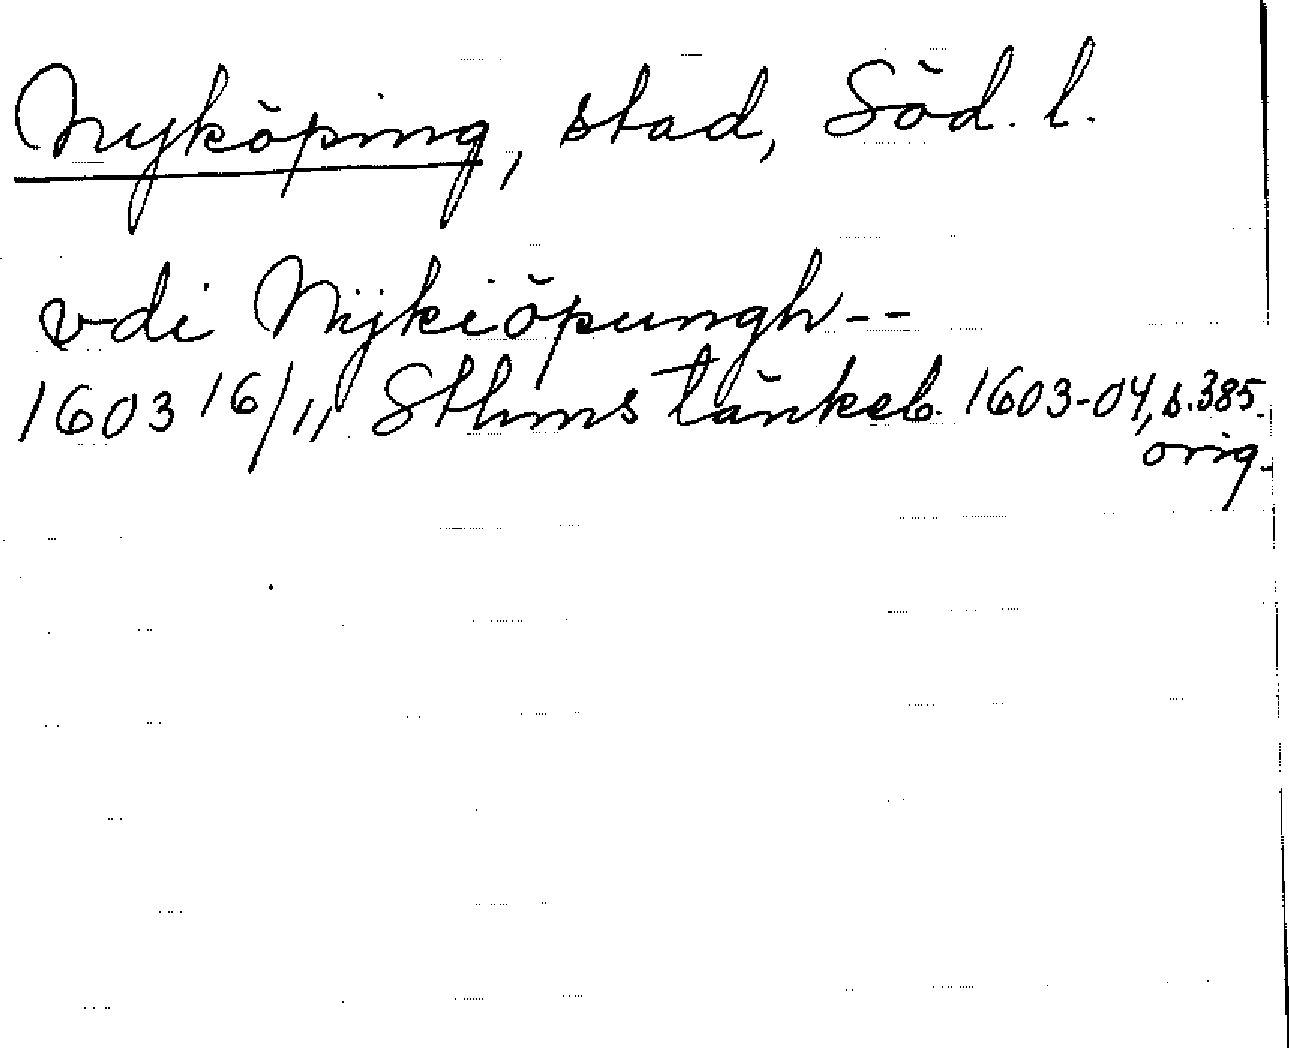 Nyköping, stad, Söd. l.
vdi Nijkiöpungh--
1603 16/11 Sthms tänkeb. 1603-04, s. 385.
orig.